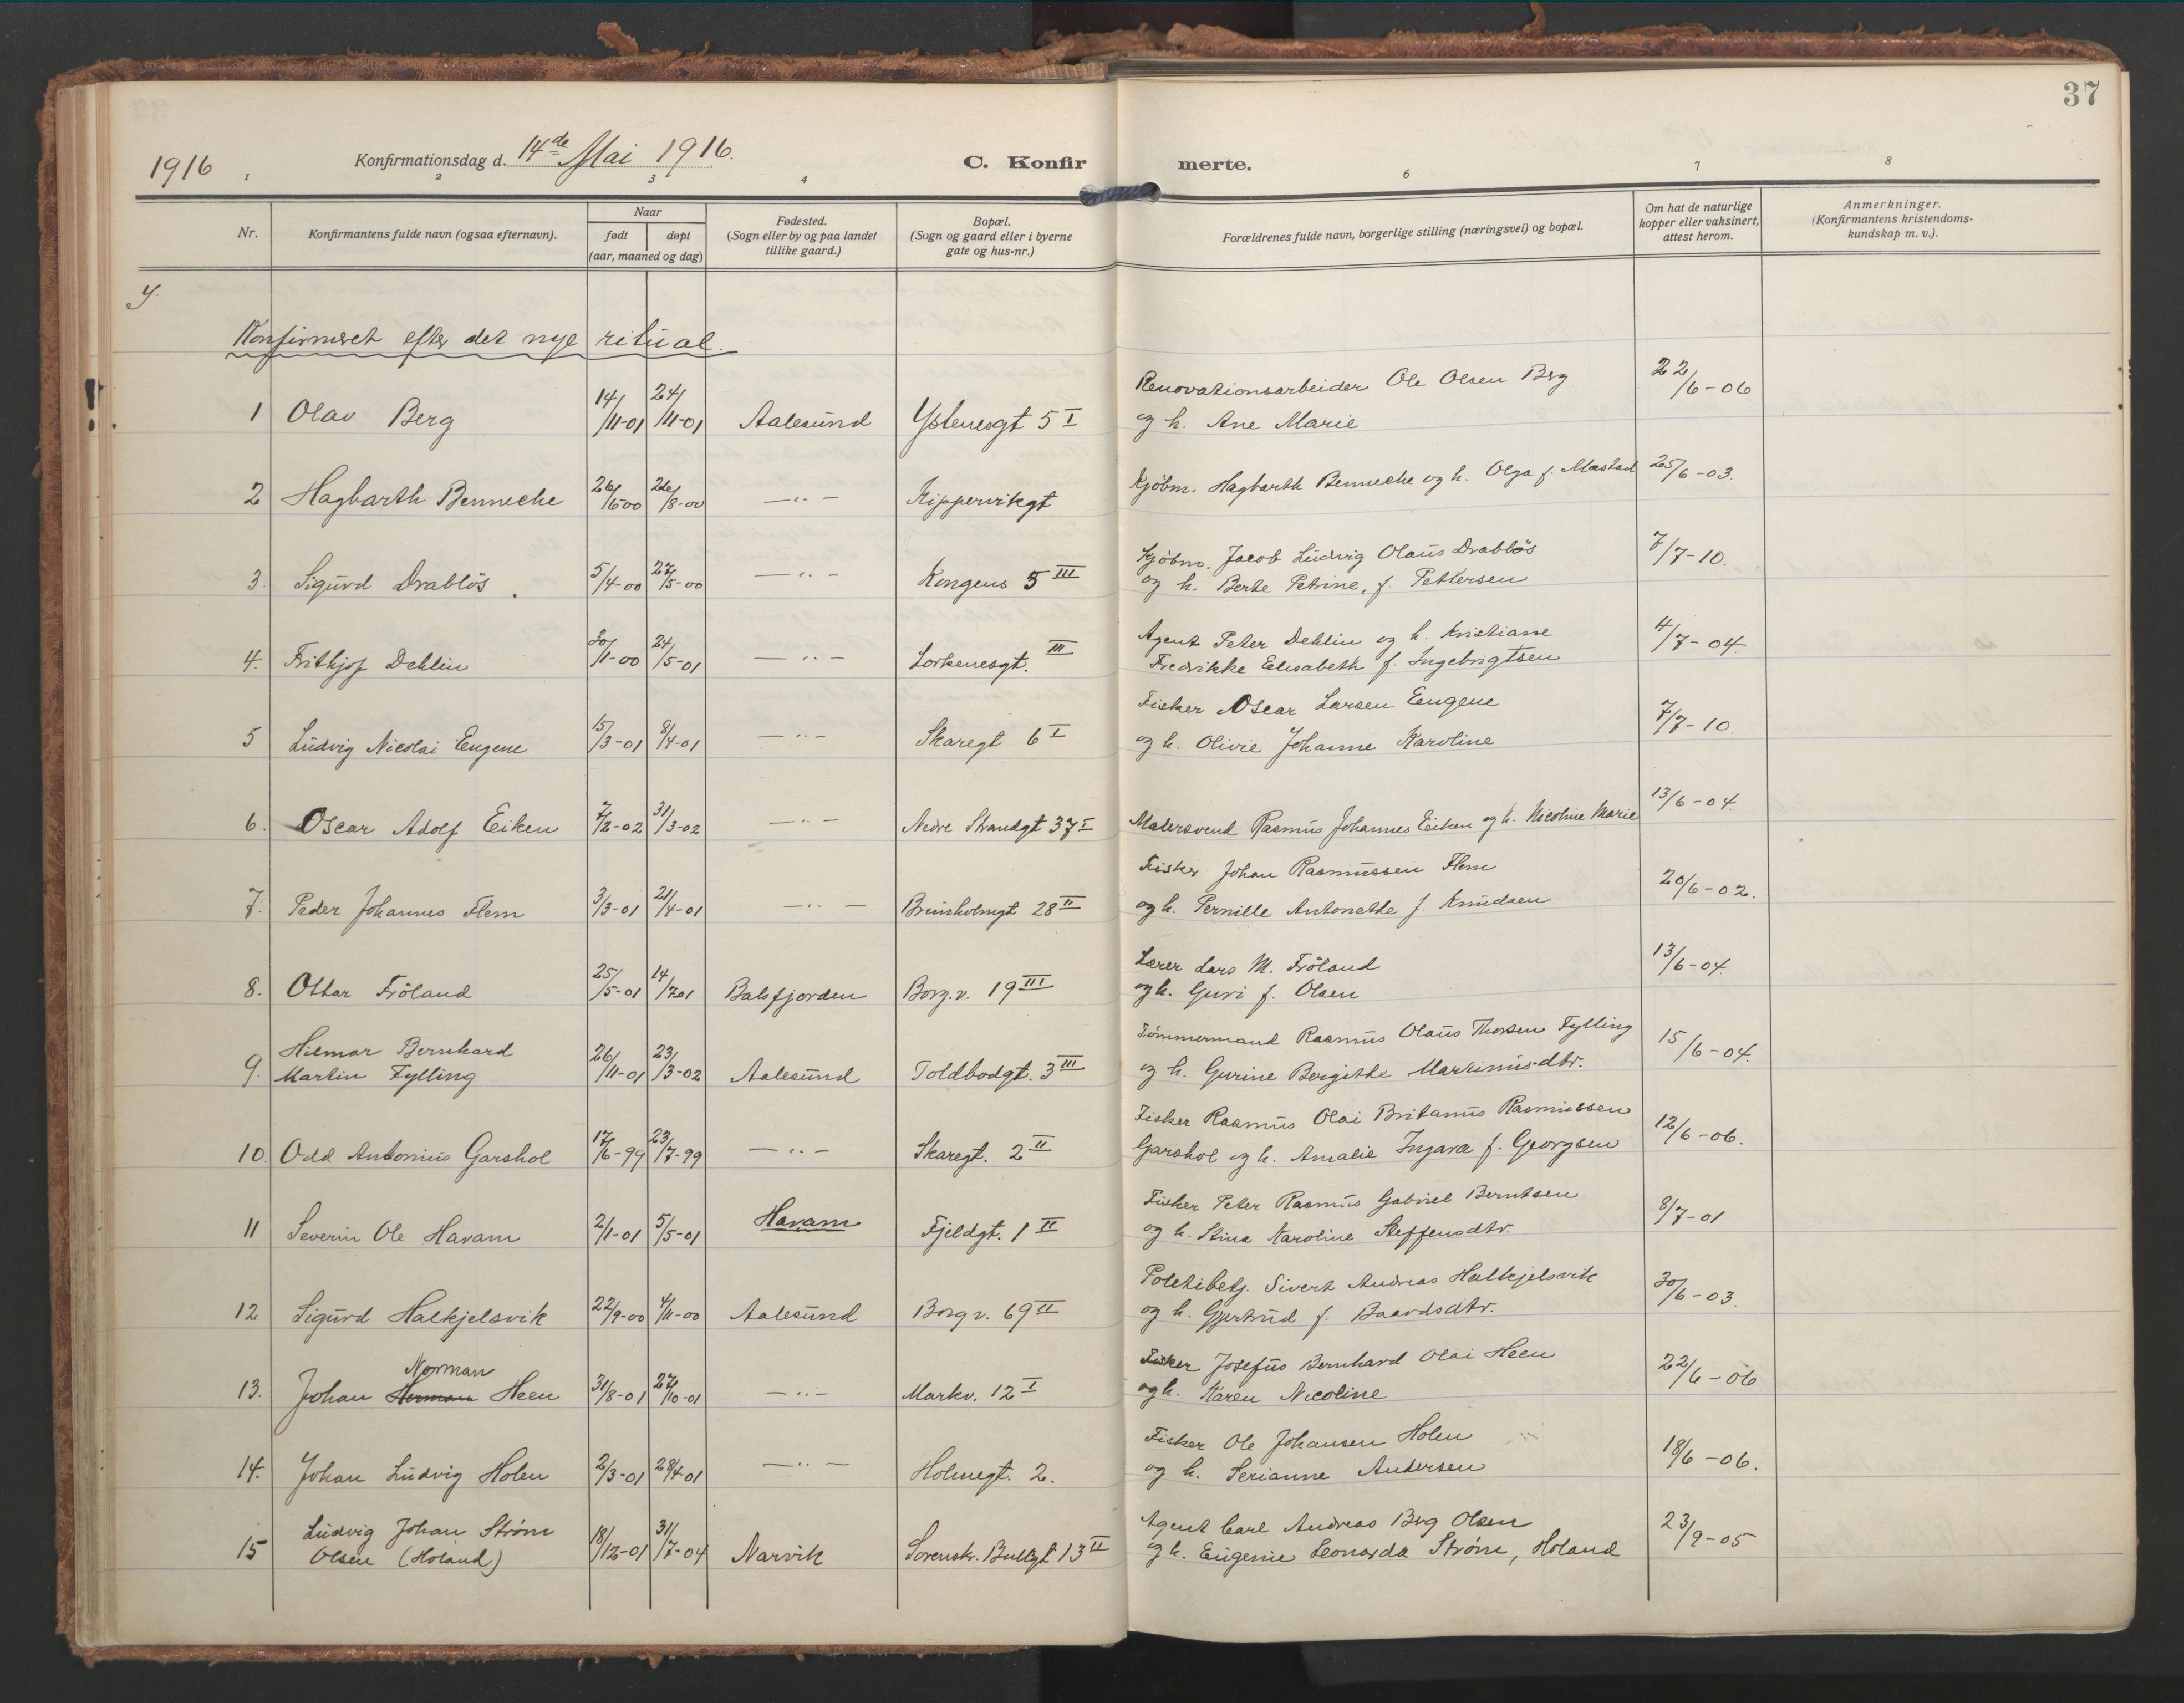 37
1916 Konfirmationsdag d. 14de Mai 1916. C. Konfir merte.
1 2 3 4 6 7 8
Nr.
Konfirmantens fulde navn (ogsaa efternavn).
Naar
født døpt
(aar, maaned og dag)
Fødested.
(Sogn eller by og paa landet
tillike gaard.)
Bopæl.
(Sogn og gaard eller i byerne
gate og hus-nr.)
Forældrenes fulde navn, borgerlige stilling (næringsvei) og bopæl.
Om hat de naturlige
kopper eller vaksinert,
attest herom.
Anmerkninger.
(Konfirmantens kristendoms-
kundskap m. v.).
Konfirmeret efter det nye ritual.
Renovationsarbeider Ole Olsen Berg 22/6-06
1 Olav Berg 14/11-01 24/11-01 Aalesund Ystenesgt 5 I og h. Ane Marie
2 Hagbarth Benneche 26/6 00 26/8-00 —"— Kippervikgt Kjøbm. Hagbarth Benneche og h. Olga f. Mastad 25/6-03.
Kjøbm. Jacob Ludvig Olaus Drabløs 7/7-10.
3. Sigurd Drabløs 5/4-00 27/5-00 —"— Kongens 5 III og h. Berte Petrine, f. Pettersen
Agent Peter Dehlin og h. Kristiane 4/7-04.
4. Frithjof Dehlin 30/1-00 24/5-01 —"— Lorkenesgt. III Fredrikke Elisabeth f. Ingebrigtsen
Fisker Oscar Larsen Eugene 7/7-10.
5 Ludvig Nicolai Eugene 15/3-01 8/4-01 —"— Skaregt 6 I og h. Olivie Johanne Karoline
6. Oscar Adolf Eiken 7/2-02 31/3-02 —"— Nedre Strandgt 37 I Malersvend Rasmus Johannes Eiken og h. Nicoline Marie 13/6-04.
Fisker Johan Rasmussen Flem 20/6-02.
7. Peder Johannes Flem 3/3-01 21/4-01 —"— Brunholmgt 28 II og h. Pernille Antonethe f. Knudsen
Lærer Lars M. Frøland 13/6-04.
8. Ottar Frøland 25/5-01 14/7 01 Balsfjorden Borg.v. 19 III og h. Guri f. Olsen
Hilmar Bernhard Tømmermand Rasmus Olaus Thorsen Fylling 15/6-04.
9. Martin Fylling 26/11-01 23/3-02 Aalesund Toldbodgt. 3 III og h. Gurine Bergithe Martinus-dtr.
Fisker Rasmus Olai Britanus Rasmussen 12/6-06.
10. Odd Antonius Garshol 17/6-99 23/7-99 —"— Skaregt. 2 II Garshol og h. Amalie Ingara f. Georgsen
Fisker Peter Rasmus Gabriel Berntsen 8/7-01
11 Severin Ole Haram 2/1-01 5/5-01 Haram Fjeldgt. 1 II og h. Stina Karoline Steffensdtr.
Politibetj. Sivert Andreas Halkjelsvik 30/6-03.
12 Sigurd Halkjelsvik 22/9-00 4/11-00 Aalesund Borg v. 69 II og h. Gjertrud f. Baardsdtr.
Norman Fisker Josefus Bernhard Olai Heen 22/6-06
13. Johan Herman Heen 31/8-01 27/10-01 —"— Markv. 12 I og h. Karen Nicoline
Fisker Ole Johansen Holen 18/6-06.
14. Johan Ludvig Holen 2/3-01 28/4-01 —"— Holmegt. 2. og h. Serianne Andersen
Ludvig Johan Strøm Agent Carl Andreas Berg Olsen 23/9-05
15 Olsen (Høland) 18/12-01 31/7-04 Narvik Sorenskr. Bullgt 13 II og h. Eugenie Leonarda Strøm, Høland